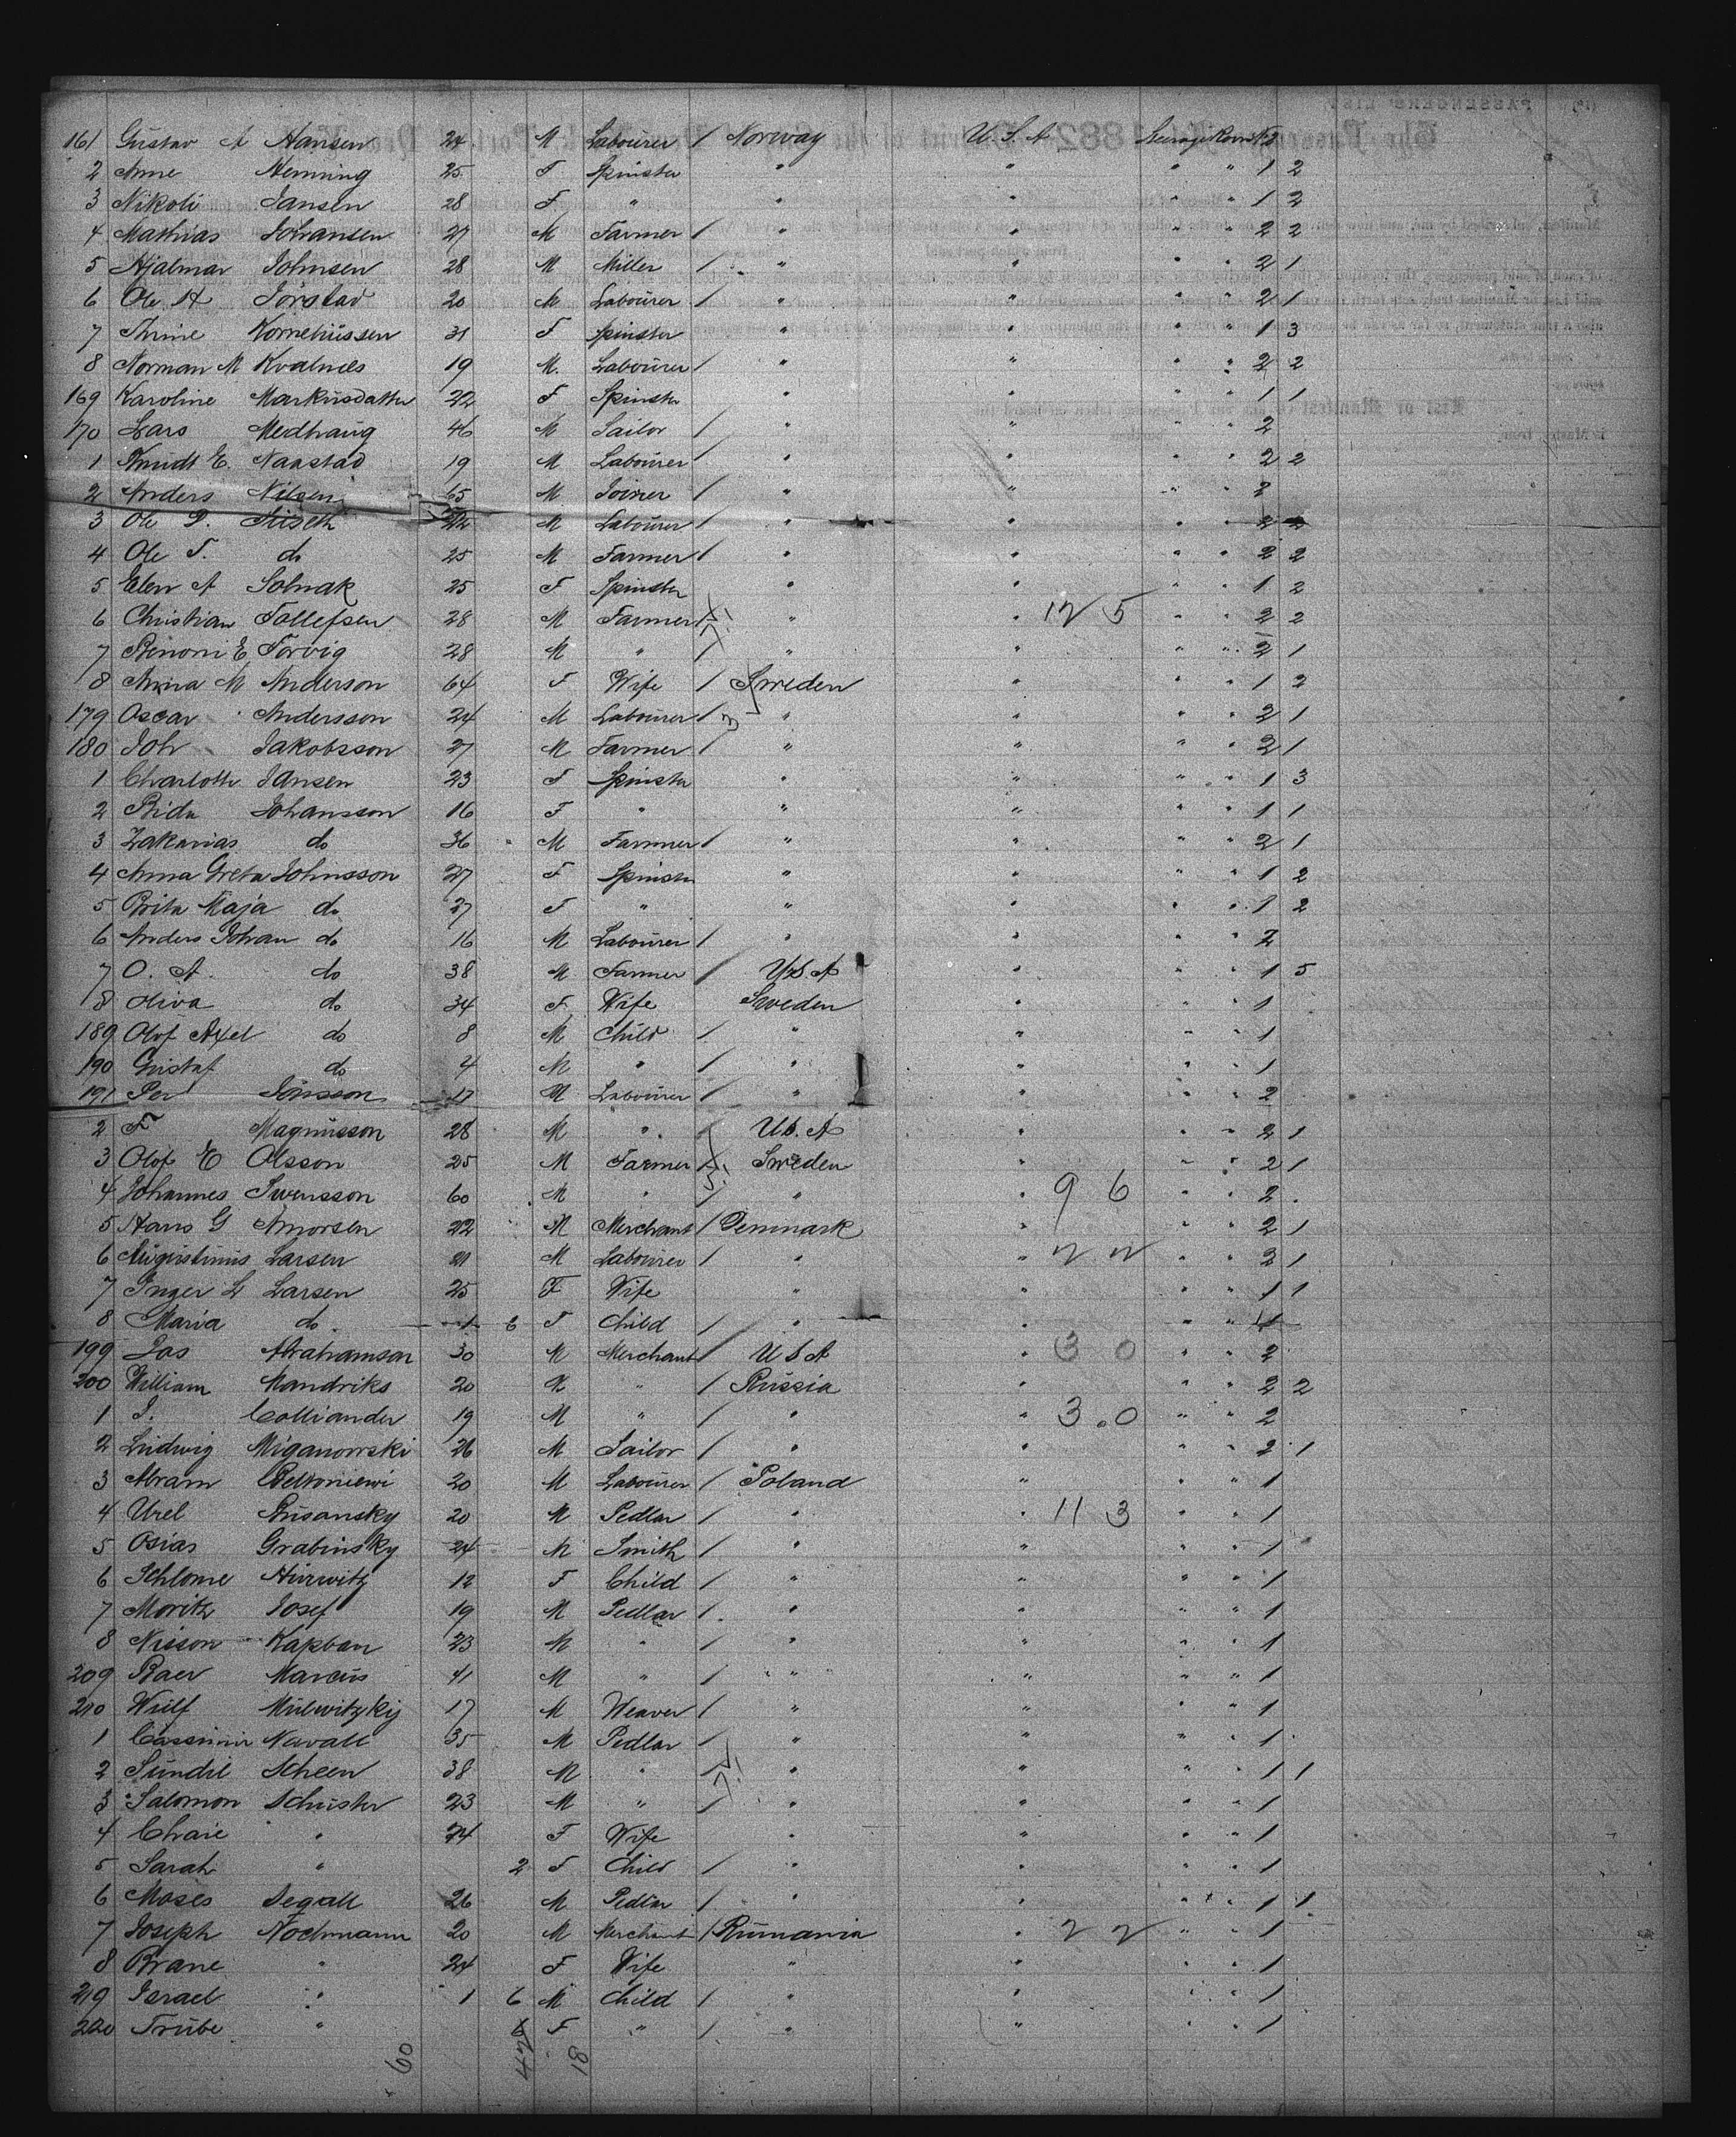 161 Gustav A Hansen 24 M Labourer / Norway U.S.A Steerage Room No 3
2 Anne Henning 25 F Spinster " " " " 1 2
3 Nikoli Jansen 28 F " " " " " 1 2
4 Mathias Johansen 27 M Farmer / " " " " 2 2
5 Hjalmar Johnsen 28 M Miller / " " " " 2 1
6 Ole H Jörstad 20 M Labourer / " " " " 2 1
7 Thrine Korneliussen 31 F Spinster " " " " 1 3
8 Norman M Kvalnes 19 M. Labourer / " " " " 2 2
169 Karoline Markusdatter 22 F Spinster " " " " 1 1
170 Lars Medhaug 46 M Sailor / " " " " 2
1 Knudt E. Naastad 19 M Labourer / " " " " 2 2
2 Anders Nilsen 65 M Joiner / " " " " 2
3 Ole P. 22 M Labourer / " " " " 2 2
4 Ole T. do 25 M Farmer / " " " " 2 2
5 Elen A Solnak 25 F Spinster " " " " 1 2
6 Christian Tollefsen 28 M Farmer / " " 12 5 " " 2 2
7 Benoni E Torvig 28 M " / " " " " 2 1
8 Anna M Anderson 64 F Wife / Sweden " " " 1 2
179 Oscar Andersson 24 M Labourer / " " " " 2 1
180 Joh Jakobsson 27 M Farmer / " " " " 2 1
1 Charlotte Jansen 23 F Spinster " " " " 1 3
2 Bida Johansson 16 F " " " " " 1 1
3 Zakarias do 36 M Farmer / " " " " 2 1
4 Anna Greta Johnsson 27 F Spinster " " " " 1 2
5 Brita Maja do 27 F " " " " " 1 2
6 Anders Johan do 16 M Labourer / " " " " 2
7 O. A. do 38 M Farmer / U.S.A " " " 1 5
8 Oliva do 34 F Wife Sweden " " " 1
189 Olof Axel do 8 M Child / " " " " 1
190 Gustaf do 4 M " / " " " " 1
191 Per Jönsson 17 M Labourer / " " " " 2
2 F Magnusson 28 M " / U.S.A " " " 2 1
3 Olof E Olsson 25 M Farmer / Sweden " " " 2 1
4 Johannes Swensson 60 M " / " " 9 6 " " 2
5 Hans G Amorsen 22 M Merchant / Denmark " " " 2 1
6 Augustinus Larsen 21 M Labourer / " " 2 2 " " 2 1
7 Inger L Larsen 25 F Wife " " " " 1 1
8 Maria do 1 6 F Child / " " " " 1
199 Jas Abrahamson 30 M Merchant / U S A " 3 0 " " 2
200 William Mandriks 20 M " / Russia " " " 2 2
1 J. Colliander 19 M " / " " 3.0 " " 2
2 Ludwig Miganowski 26 M Sailor / " " " " 2 1
3 Abram 20 M Labourer / Poland " " " 1
4 Urel Rusansky 20 M Pedlar / " " 11 3 " " 1
5 Osias Grabinsky 24 M Smith / " " " " 1
6 Schlome Hurwitz 12 F Child / " " " " 1
7 Moritz Josef 19 M Pedlar / " " " " 1
8 Nisson Kapban 23 M " / " " " " 1
209 Baer Marcus 41 M " / " " " " 1
210 Wulf Mulwitzkij 17 M Weaver / " " " " 1
1 Cassimir Navall 35 M Pedlar / " " " " 1
2 Sundil Scheen 38 M " / " " " " 1 1
3 Salomon Schuster 23 M " / " " " " 1
4 Chaie " 24 F Wife " " " " 1
5 Sarah " 2 F Child / " " " " 1
6 Moses Segall 26 M Pedlar / " " " " 1 1
7 Joseph Nochmann 20 M Merchant / Rumania " 2 2 " " 1
8 Brane " 24 F Wife " " " " 1
219 Israel " 1 6 M Child / " " " " 1
220 Trube " 6 F " / " " " " 1
60 42 18